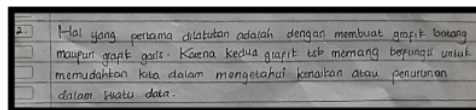 2. Hal yang pertama dilakukan adalah dengan membuat grafik batang
maupun grafik garis. Karena kedua grafik tsb memang berfungsi untuk
memudahkan kita dalam mengetahui kenaikan atau penurunan
dalam suatu data.